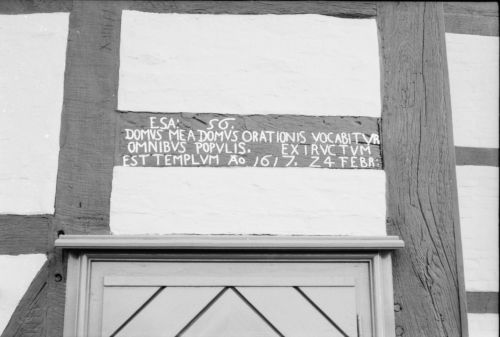 ESA: 56.
DOMVS MEA DOMVS ORATIONIS VOCABITVR
OMNIBVS POPVLIS. EXTRVCTVM
EST TEMPLVM AO 1617. 24 FEBR: